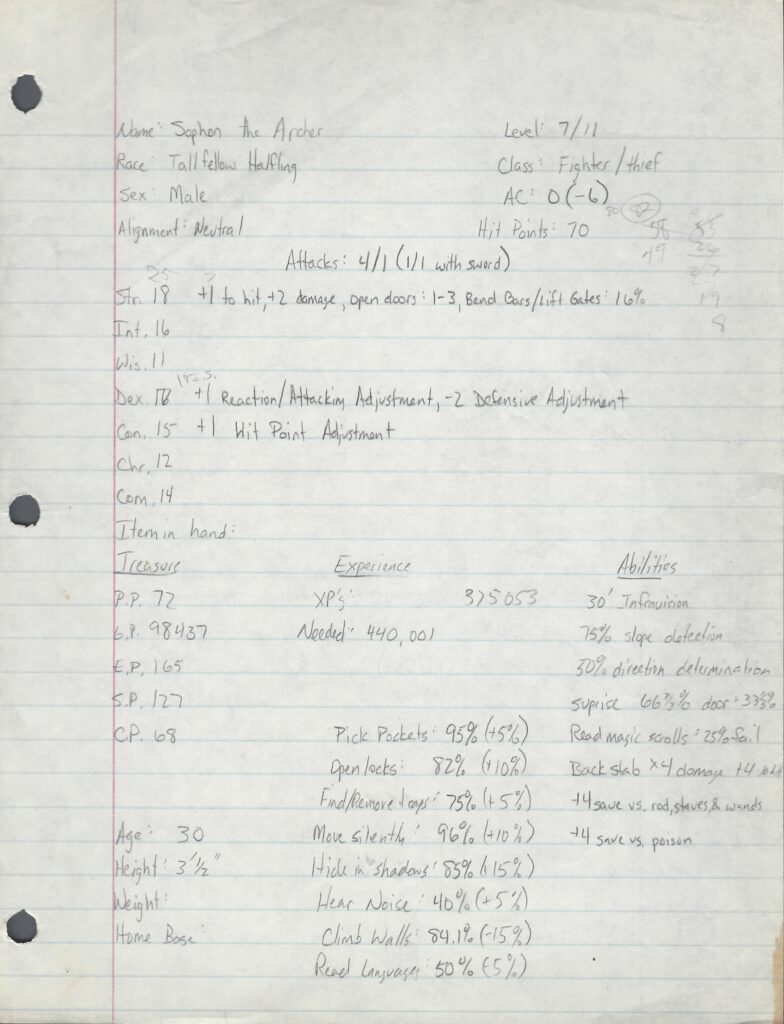 Name: Sophon the Archer Level: 7/11
Race: Tallfellow Halfling Class: Fighter/thief
Sex: Male AC: 0 (-6)
50 82
Alignment: Neutral Hit Points: 70 58
49
Attacks: 4/1 (1/1 with sword)
25
Str. 18 +1 to hit, +2 damage, Open doors: 1-3, Bend Bars/Lift Gates: 16% 19
8
Int. 16
Wis. 11
Dex. +1 Reaction/Attacking Adjustment, -2 Defensive Adjustment
Con. 15 +1 Hit Point Adjustment
Chr. 12
Com. 14
Item in hand:
Treasure Experience Abilities
P.P. 72 XP's: 375053 30' Infravision
G.P. 98437 Needed: 440,001 75% slope detection
E.P. 165 50% direction determination
S.P. 127 suprise 66 2/3% door: 33 1/3%
C.P. 68 Pick Pockets: 95% (+5%) Read magic scrolls: 25% fail
Open locks: 82% (+10%) Back stab x4 damage +4
Find/Remove traps: 75% (+5%) +4 save vs. rod, staves, & wands
Age: 30 Move silently: 96% (+10%) +4 save vs. poison
Height: 3' 1/2" Hide in shadows: 85% (+15%)
Weight: Hear Noise: 40% (+5%)
Home Base: Climb Walls: 84.1% (-15%)
Read Languages: 50% (-5%)